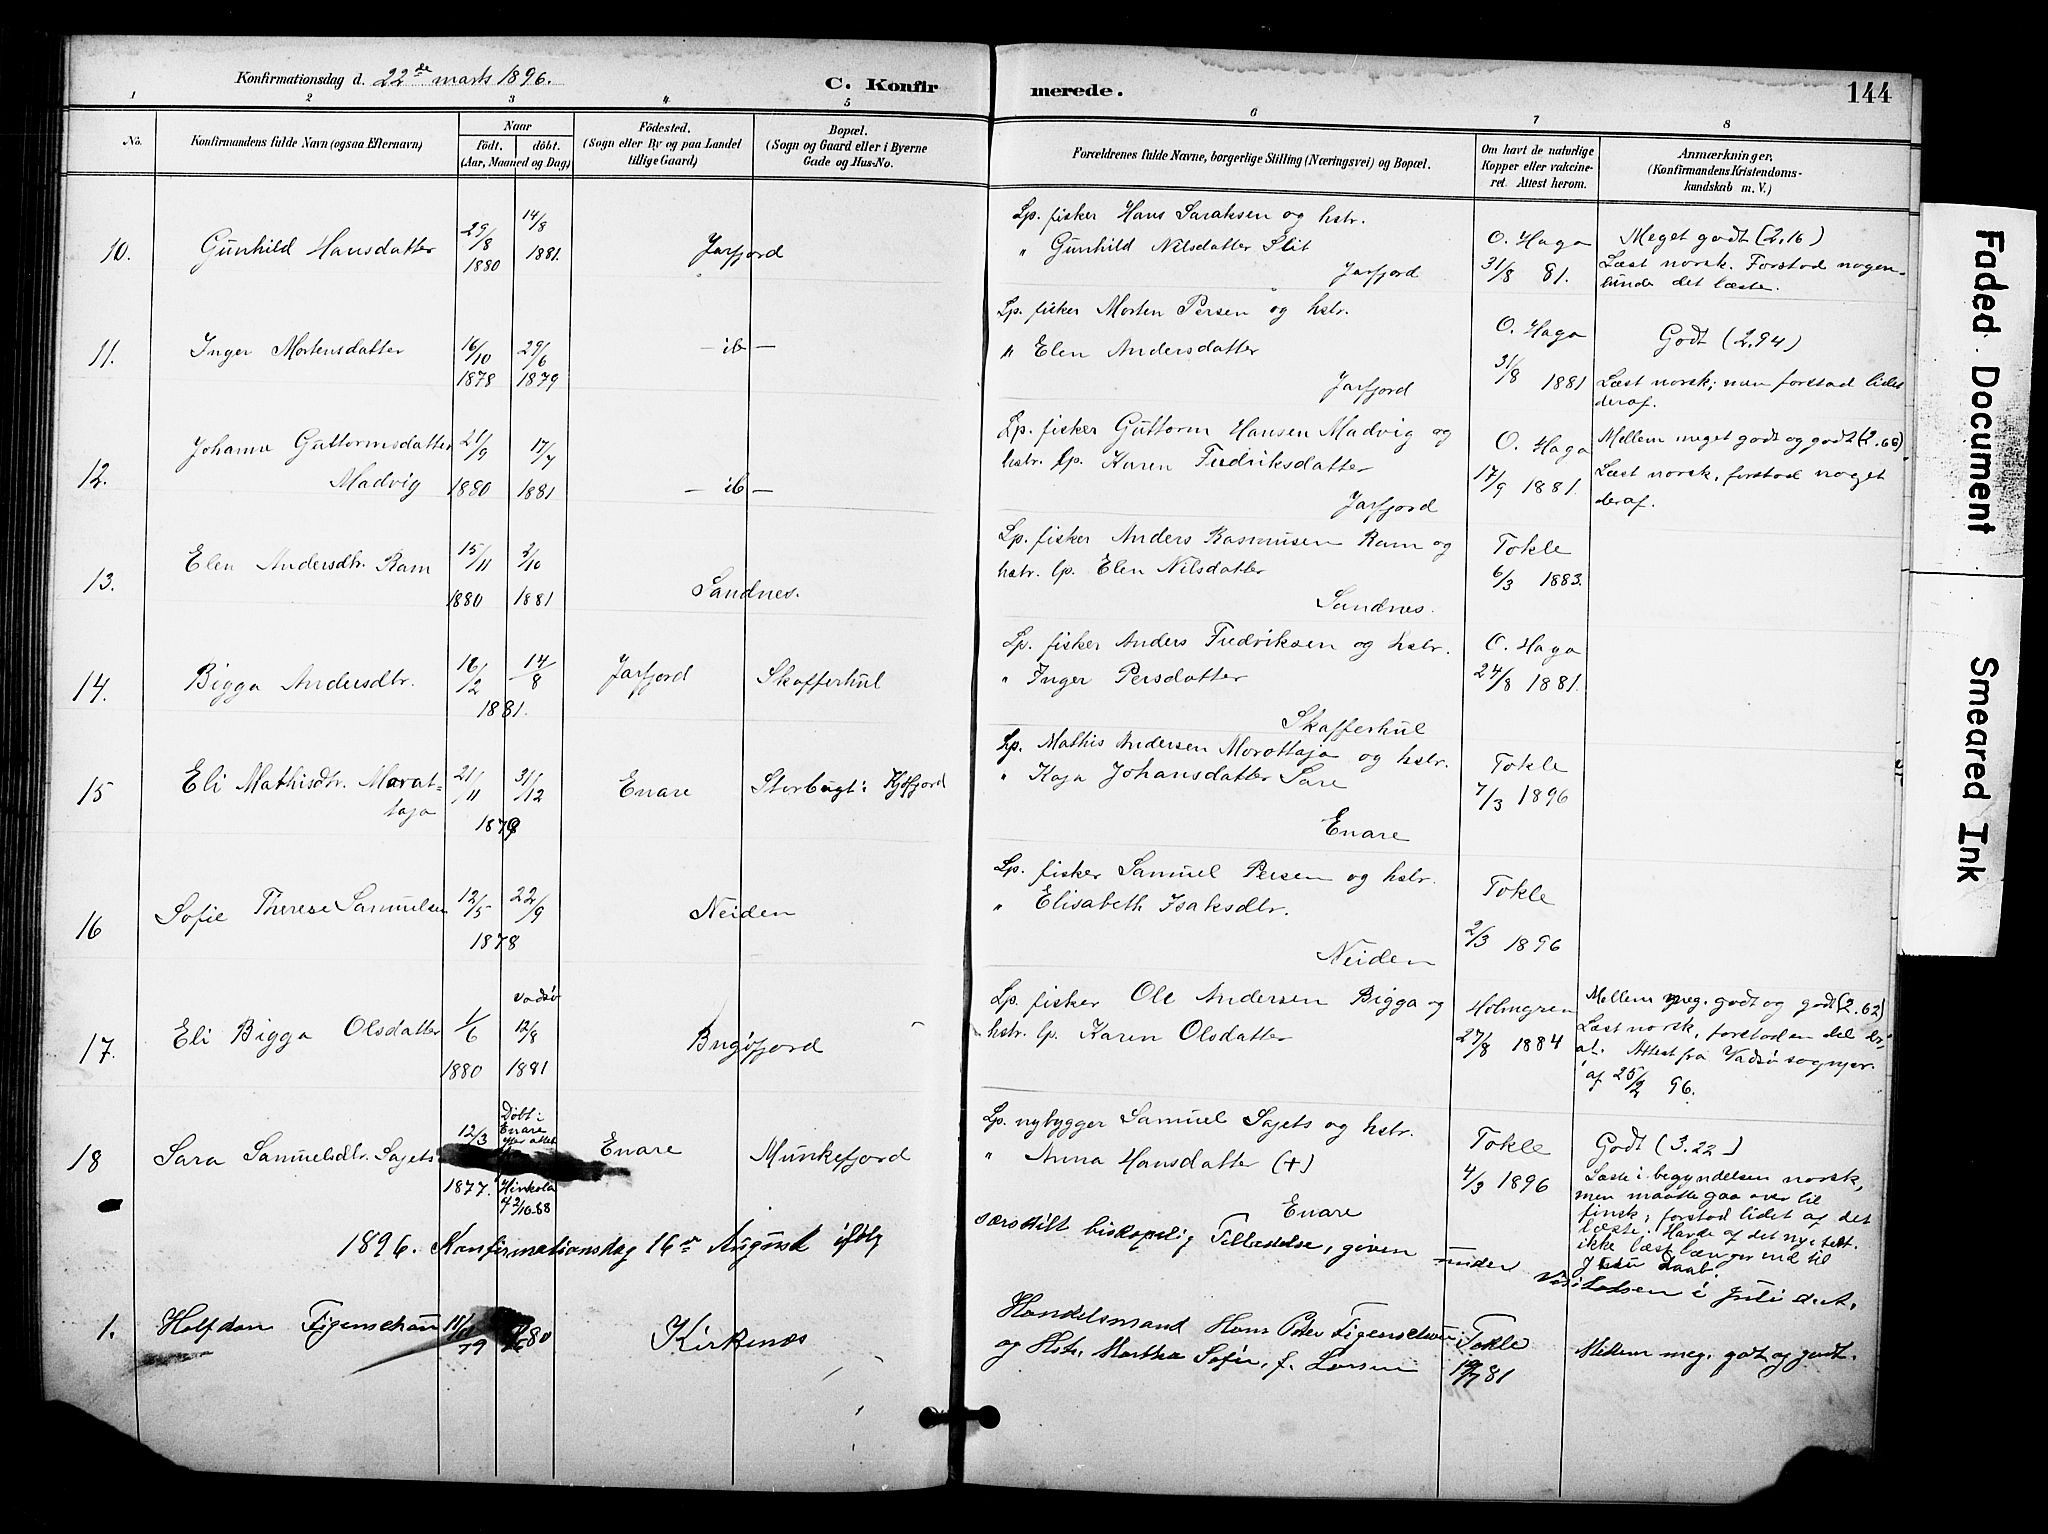 Konfirmationsdag d. 22de marts 1896.
C. Konfir
merede.
144
1 2 3 4 5 6 7 8
No.
Konfirmandens fulde Navn (ogsaa Efternavn)
Naar
födt. döbt.
(Aar, Maaned og Dag)
Födested.
(Sogn eller By og paa Landet
tillige Gaard)
Bopæl.
(Sogn og Gaard eller i Byerne
Gade og Hus-No.
Forældrenes fulde Navne, borgerlige Stilling (Næringsvei) og Bopæl.
Om havt de naturlige
Kopper eller vakcine-
ret. Attest herom.
Anmærkninger.
(Konfirmandens Kristendoms-
kundskab m. V.)
10. Gunhild Hansdatter 29/8 1880 14/8 1881. Jarfjord
Lp. fisker Hans Saraksen og hstr.
" Gunhild Nilsdatter Slit
Jarfjord
O. Haga
31/8 81.
Meget godt (2.16)
Læst norsk. Forstod nogen-
lunde det læste.
11. Inger Mortensdatter 16/10 1878 29/6 1879 — ib —
Lp. fisker Morten Persen og hstr.
" Elen Andersdatter
Jarfjord
O. Haga
31/8 1881
Godt (2.94)
Læst norsk; men forstod lidet
deraf.
12. Johanna Guttormsdatter
Madvig 21/9 1880 17/7 1881 — ib —
Lp. fisker Guttorm Hansen Madvig og
hstr. lp. Karen Fredriksdatter
Jarfjord
O. Haga
17/9 1881.
Mellem meget godt og godt (2.66)
Læst norsk, forstod noget
deraf.
13. Elen Andersdtr. Ram 15/11 1880 2/10 1881 Sandnes.
Lp. fisker Anders Rasmusen Ram og
hstr. lp. Elen Nilsdatter
Sandnes.
Tokle
6/3 1883.
14. Bigga Andersdtr. 16/2 14/8 1881. Jarfjord Skafferhul
Lp. fisker Anders Fredriksen og hstr.
" Inger Persdatter
Skafferhul
O. Haga
24/8 1881.
15 Eli Mathisdtr. Morat-
taja 21/11 31/12 Enare Storbugt i Kjøfjord
Lp. Mathis Andersen Morottaja og hstr.
" Kaja Johansdatter Sare
Enare
Tokle
7/3 1896
16 Sofie Therese Samuelsen 12/5 22/9 1878 Neiden
Lp. fisker Samuel Persen og hstr.
" Elisabeth Isaksdtr.
Neiden
Tokle
2/3 1896
17. Eli Bigga Olsdatter 1/6 1880 Vadsø 12/8 1881 Bugøfjord
Lp. fisker Ole Andersen Bigga og
hstr. lp. Karen Olsdatter
Holmgren
27/8 1884
Mellem meg. godt og godt (2.62)
Læst norsk, forstod en del der-
af. Attest fra Vadsø sognepr.
af 25/2 96.
18 Sara Samuelsdtr. Sajets 12/3 1877. Døbt i
Enare
efter attest
Enare Munkefjord
Lp. nybygger Samuel Sajets og hstr.
" Anna Hansdatter (+)
Enare
Tokle
4/3 1896
Godt (3.22)
Læste i begyndelsen norsk,
men maatte gaa over til
finsk; forstod lidet af det
læste. Havde af det nye test.
ikke læst længer end til
Jesu Daab.
1896. Konfirmationsdag 16de August ifølg
særskilt biskopelig Tilladelse, given under
i Juli d. A.
1. Halfdan Figenschau 79 80 Kirkenæs
Handelsmand Hans Peter Figenschau
og Hstr. Martha Sofie, f. Larsen
Tokle
81
Mellem meg. godt og godt.
Faded Document
Smeared Ink